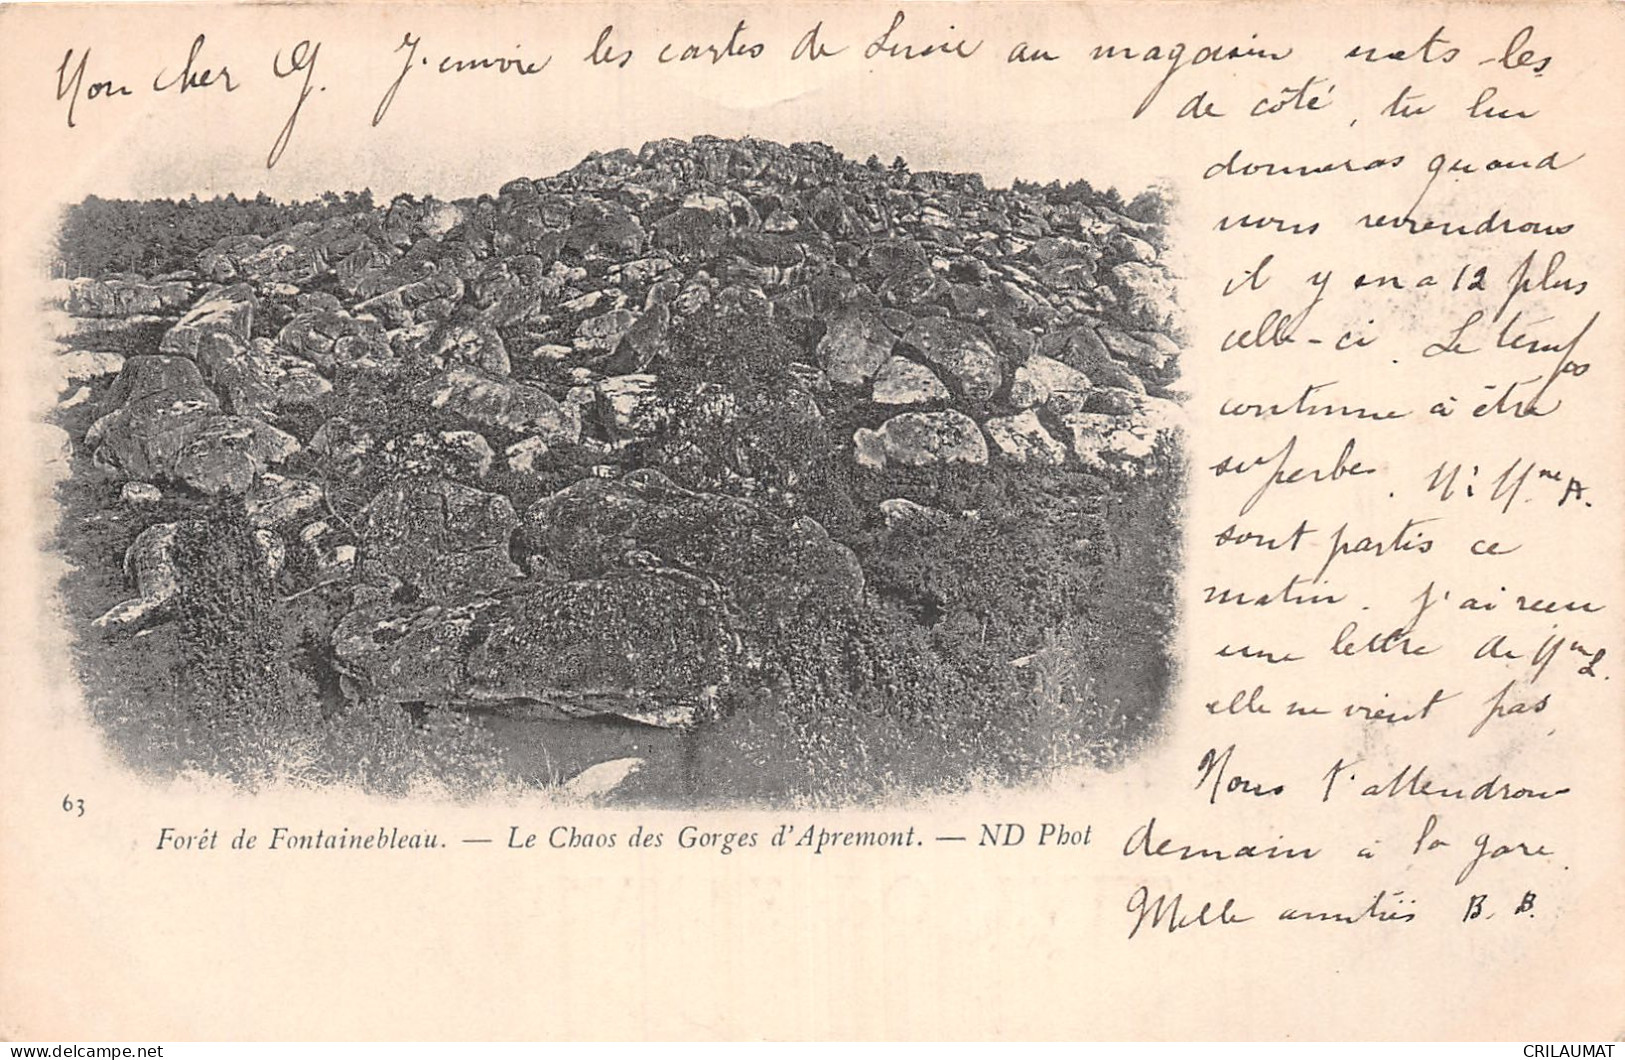 Mon cher G. J'envoie les cartes de Lucie au magasin mets-les
de côté, tu lui
donneras quand
nous reviendrons
il y en a 12 plus
celle-ci. Le temps
continue à être
superbe. M. Mme A.
sont partis ce
matin. J'ai reçu
une lettre de Mme L.
elle ne vient pas
Nous t'attendrons
demain à la gare.
Mille amitiés B. B.
63
Forêt de Fontainebleau. — Le Chaos des Gorges d'Apremont. — ND Phot
CRILAUMAT